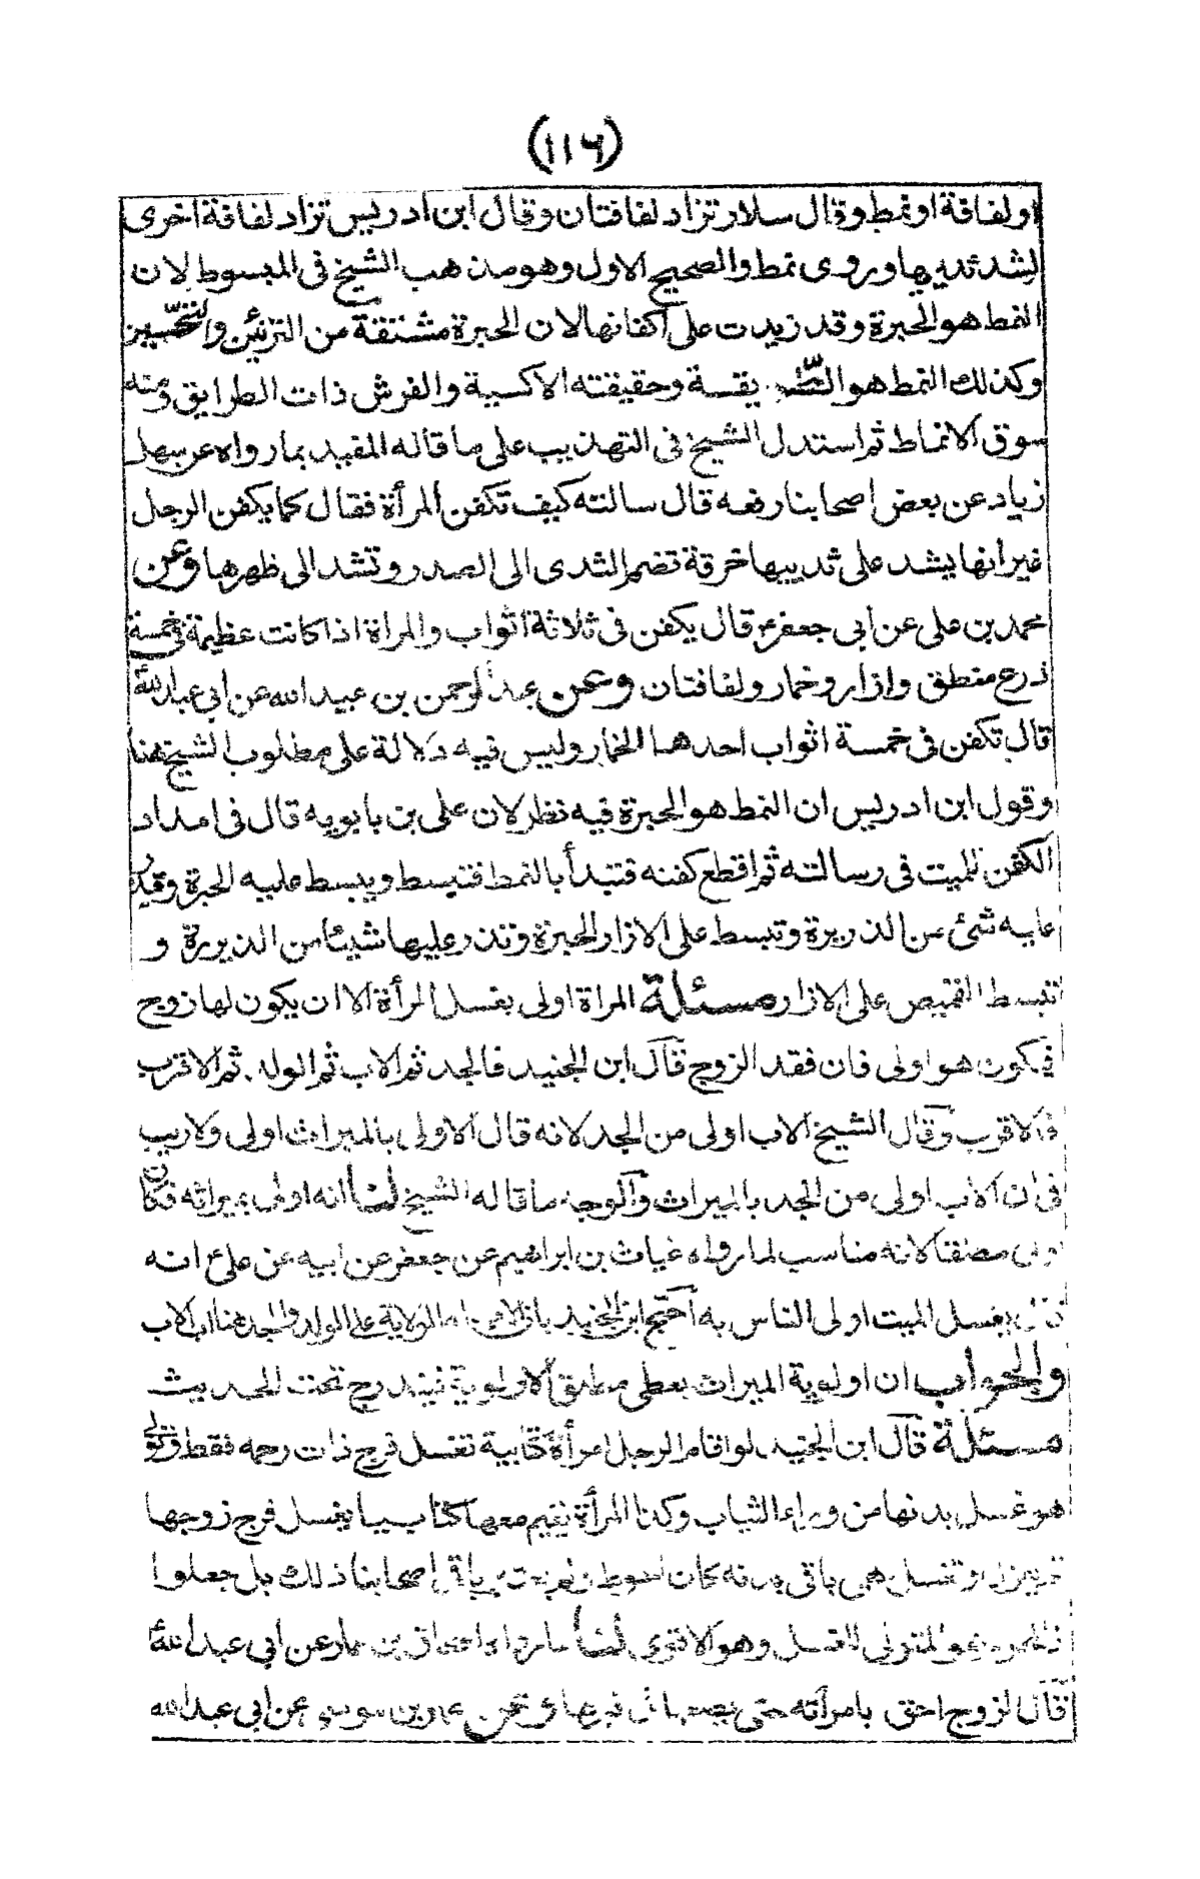 (١١٦)
او لفافة او نمط وقال سلار تزاد لفافتان وقال ابن ادريس تزاد لفافة اخرى
لشد ثدييها وروى نمط والصحيح الاول وهو مذهب الشيخ فى المبسوط لان
النمط هو الحبرة وقد زيدت على اكفانها لان الحبرة مشتقة من التزئين والتحسين
وكذلك النمط هو يقسة وحقيقته الاكسية والفرش ذات الطرايق ومنه
سوق الانماط ثم استدل الشيخ فى التهذيب على ما قاله المفيد بما رواه عن سهل
زياد عن بعض اصحابنا رفعه قال سالته كيف تكفن المرأة فقال كما يكفن الرجل
غير انها يشد على ثدييها خرقة تضم الثدى الى الصدر وتشد الى ظهرها وعن
محمد بن على عن ابى جعفر ع قال يكفن فى ثلاثة اثواب والمراة اذا كانت عظيمة فى خمسة
درع منطق وازار وخمار ولفافتان وعن عبد الرحمن بن عبيد الله عن ابى عبد الله
قال تكفن فى خمسة اثواب احدها الخمار وليس فيه دلالة على مطلوب الشيخ هنا
وقول ابن ادريس ان النمط هو الحبرة فيه نظر لان على بن بابويه قال فى امداد
الكفن للميت فى رسالته ثم اقطع كفنه فتبدأ بالنمط فتبسط ويبسط عليه الحبرة وتذر
عليه شئ من الذريرة وتبسط على الازار الحبرة وتذر عليها شيئا من الذريرة و
تبسط القميص على الازار مسئلة المراة اولى بغسل المرأة الا ان يكون لها زوج
فيكون هو اولى فان فقد الزوج قال ابن الجنيد فالجد ثم الاب ثم الولد ثم الاقرب
فالاقرب وقال الشيخ الاب اولى من الجد لانه قال الاولى بالميراث اولى ولا ريب
فى ان الاب اولى من الجد بالميراث والوجه ما قاله الشيخ لنا انه اولى بميراثه فكان
اولى مطلقا لانه مناسب لما رواه غياث بن ابراهيم عن جعفر عن ابيه عن على ع انه
قال يغسل الميت اولى الناس به احتج ابن الجنيد بان الولاية على الولد والجد هنا اب الاب
والجواب ان اولوية الميراث يعطى مطلق الاولوية فيندرج تحت الحديث
مسئلة قال ابن الجنيد لو اقام الرجل امرأة كتابية تغسل فرج ذات رحمه فقط وتولى
هو غسل بدنها من وراء الثياب وكذا المرأة تقيم معها كتابيا يغسل فرج زوجها
وتغسل هى باقى بدنه كان باقى اصحابنا ذلك بل جعلوا
المتولى للغسل وهو الاقوى لنا ما رواه اسحاق بن عمار عن ابى عبد الله
قال الزوج احق بامرأته حتى يضعها فى قبرها وعن عمار بن موسى عن ابى عبد الله